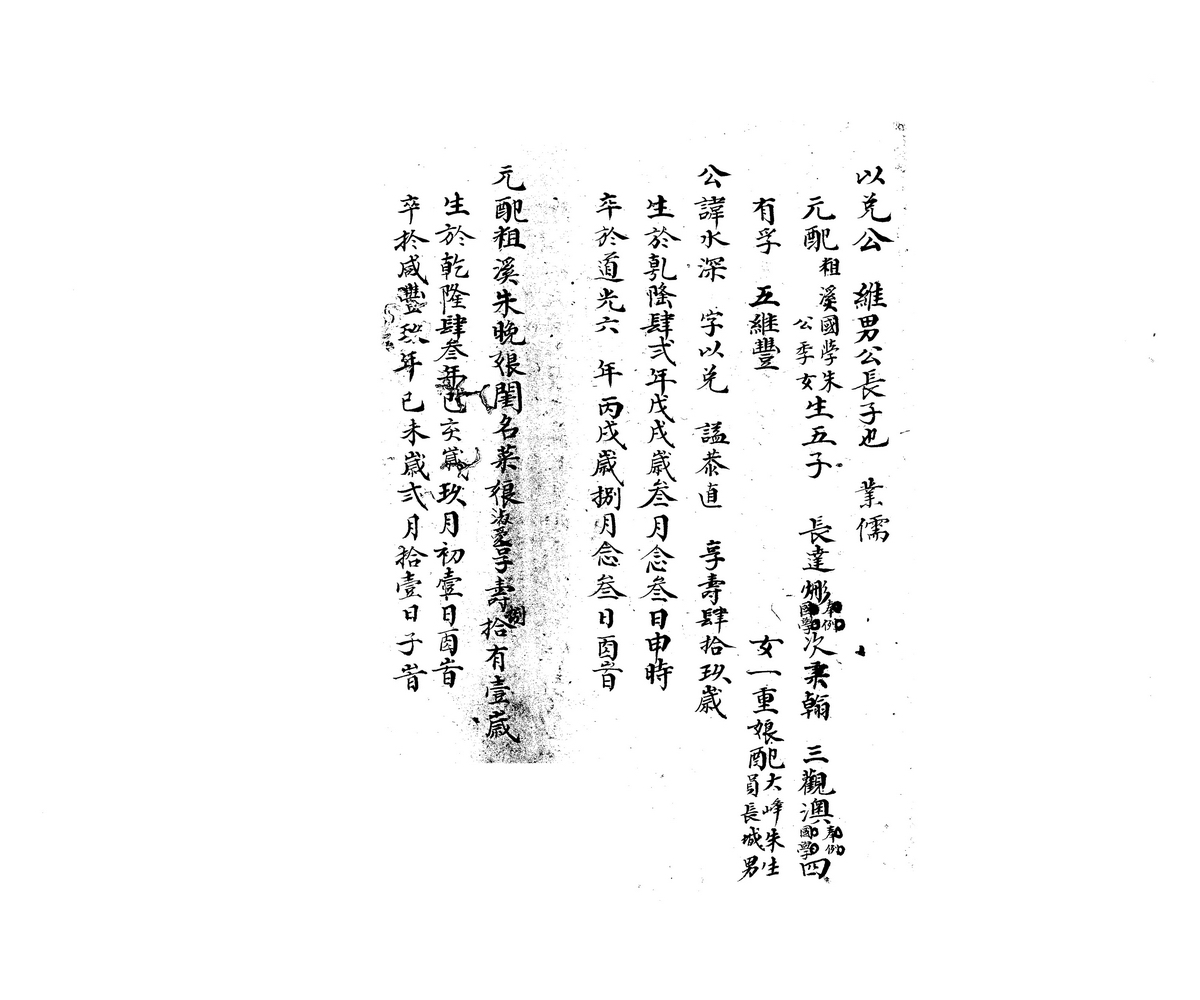 以兌公 維男公長子也 業儒
元配祖溪國學朱公季女生五子 長達彬奉例國學次秉翰 三觀澳奉例國學四
有孚 五維豐 女一重娘配大峰朱生員長城男
公諱水深 字以兌 諡恭直 享壽肆拾玖歲
生於乾隆肆弍年戊戌歲叁月念叁日申時
卒於道光六 年丙戌歲捌月念叁日酉旹
元配祖溪朱晚娘閨名菜娘淑愛享壽捌拾有壹歲
生於乾隆肆叁年己亥歲玖月初壹日酉旹
卒於咸豐玖年己未歲弍月拾壹日子旹